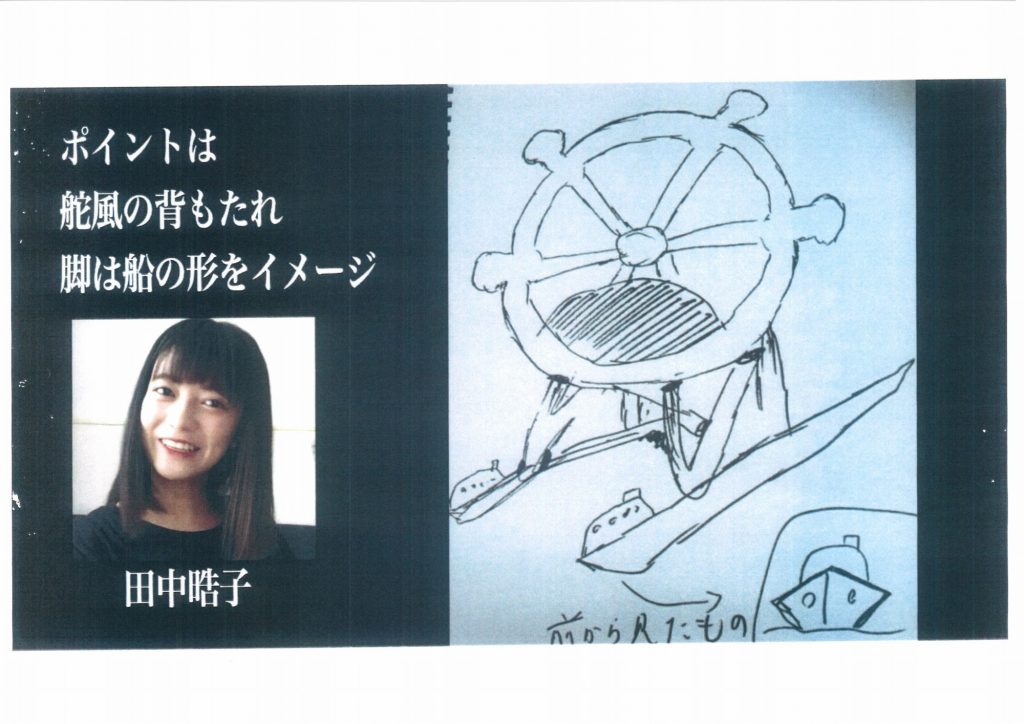 ポイントは
舵風の背もたれ
脚は船の形をイメージ
田中晧子
前から見たもの